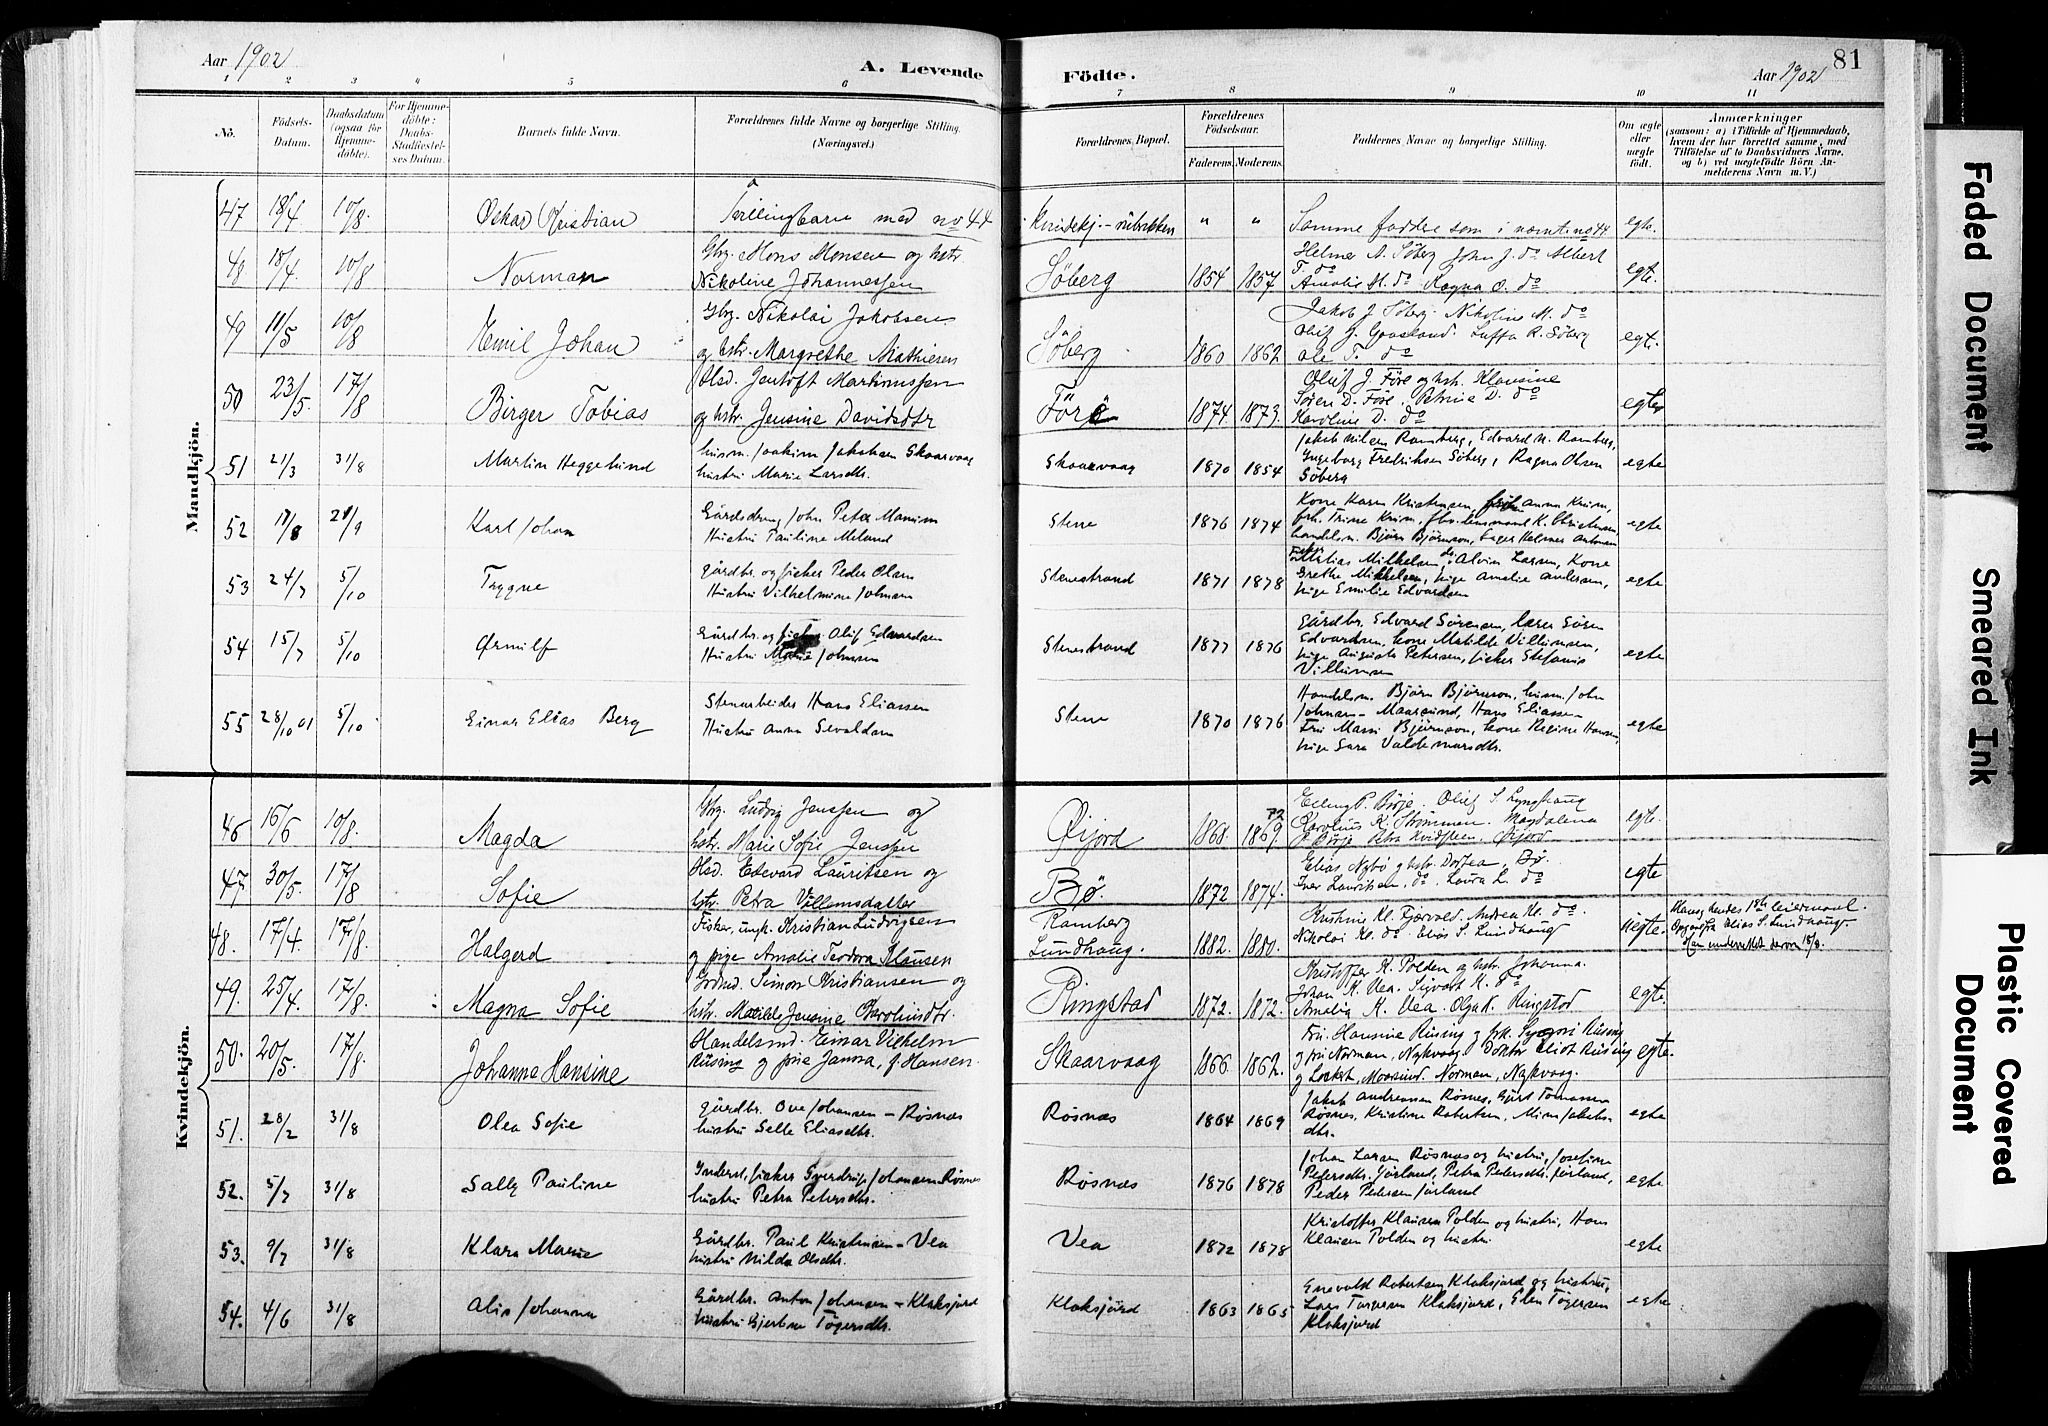 Aar 1902
A. Levende Födte.
81
Aar 1902
1 2 3 4 5 6 7 8 9 10 11
No.
Födsels-Datum.
Daabsdatum (ogsaa for Hjemmedöbte).
For Hjemmedöbte: Daabs-Stadfæstelses Datum.
Barnets fulde Navn.
Forældrenes fulde Navne og borgerlige Stilling. (Næringsvei.)
Forældrenes Bopæl.
Forældrenes Födselsaar.
Faderens. Moderens.
Faddernes Navne og borgerlige Stilling.
Om ægte eller uægte födt.
Anmærkninger
(saasom: a) i Tilfælde af Hjemmedaab, hvem der har forrettet samme, med Tilföielse af to Daabsvidners Navne, og b) ved uægtefödte Börn Anmelderens Navn m. V.)
Mandkjön.
47 18/4 10/8. Oskar Kristian Tvillingbarn med no 44 Kvindekj.-rubrikken " " Samme faddere som i nævnte no 44 egte.
48 18/4 10/8 Norman Gbrg. Mons Monsen og hstr. Nikoline Johannessen Söberg 1854 1857 Helmer A. Söberg John J. do Albert T. do Amalie M. do Ragna O. do egte.
49 11/5 10/8 Emil Johan Gbrg. Nikolai Jakobsen og hstr. Margrethe Mathisen Söberg 1860 1862 Jakob J. Söberg. Nikoline M. do Oluf J. R. Söberg Ole T. do egte.
50 23/5. 17/8 Birger Tobias Hsd. Jentoft Martinussen og hstr. Jensine Davidsdtr Före 1874 1873. Oluf J. Före og hstr. Klausine Sören D. Före, Petrine D. do Karoline D. do egte
51 21/3 31/8 Martin Heggelund husm. Joakim Jakobsen Skaarvaag hustru Marie Larsdtr. Skaarvaag 1870 1854 Jakob Nilsen Ramberg, Edvard N. Ramberg, Ingeborg Fredriksen Söberg, Ragna Olsen Söberg egte
52 17/8 21/9 Karl Johan Gårdsdreng John Peter Hustru Pauline Meland Stene 1876 1874 Kone Karen Kristensen, Anna Krim, frk. Trine Krim, lensmand K. Christensen, handelsm. Björn Björnson, Helmer Antonsen egte
53 24/7 5/10 Trygve gårdbr. og fisker Peder Olsen Hustru Vilhelmine Johnsen Stenestrand 1871 1878 Mathias Mikkelsen, do. Alvin Larsen, Kone Grethe Mikkelsen, pige Amalie Andersen, pige Emilie Edvardsen egte
54 15/7 5/10 Ørnulf Gårdbr. og fisker Oluf Edvardsen Hustru Marie Johnsen Stenestrand 1877 1876 Gårdbr. Edvard Sörensen, lærer Sören Edvardsen, kone Matilde Villumsen, pige Augusta Petersen, fisker Stefanus Villumsen egte
55 28/10 01 5/10 Einar Elias Berg Stenarbeider Hans Eliassen Hustru Anna Sevaldsen Stene 1870 1876 Handelsm. Björn Björnson, husm. John Johnsen - Maarsund, Hans Eliassen Fru Massi Björnson, kone Regine Hansen, pige Sara Valdemarsdtr. egte
Kvindekjön.
46 16/6 10/8. Magda Gbrg. Ludvig Jenssen og hstr. Marie Sofie Jenssen Øifjord 1868. 72 1869. Erling P. Børje. Oluf S. Lynghaug Karolius K. Strömmen. Magdalena P. Børje Petra Øifjord egte.
47. 30/5. 17/8 Sofie Hsd. Edevard Lauritsen og hstr. Petra Villumsdatter Bø. 1872 1874. Elias Nybø og hstr. Dortea, Bø. Iver Lauritsen, do. Laura L. do egte
48. 17/4. 17/8. Halgerd Fisker, ungk. Kristian Ludvigsen og pige Amalie Teodora Klausen Ramberg Lundhaug. 1882. 1880. Kristine Kl. Fjærvold. Andrea Kl. do. Nikolai Kl. do Elias S. Lundhaug uegte. Hans og hendes 1ste leiermaal. Opgave fra Elias S. Lundhaug. Han underrettet derom 18/8.
49. 25/4. 17/8. Magna Sofie Grdmd. Simon Kristiansen og hstr. Matilde Jensine Karolinsdtr. Ringstad 1872. 1872. Kristoffer K. Polden og hstr. Johanna. Johan K. Vea. Sigvart K. do Amalia K. Vea. Olga K. Ringstad egte.
50. 20/5. 17/8. Johanna Hansine Handelsmd. Einar Vilhelm Rüsing og frue Janna, f. Hansen. Skaarvaag 1866. 1862. Fru Hansine Rüsing og frk. Rüsing og fru Norman, Nykvaag. Doktor Eliot Rüsing og Lockert, Maarsund. Norman, Nykvaag. egte.
51. 28/2 31/8 Olea Sofie gårdbr. Ove Johansen - Røsnæs hustru Selle Eliasdtr. Røsnæs 1864 1869 Jakob Andreassen Røsnes, Gjert Tomassen Røsnes, Kristine Robertsen, Mina Jakobsdtr. egte
52. 5/7 31/8 Sally Pauline Inderst, fisker Sverdrup Johansen Røsnes hustru Petra Petersdtr. Røsnæs 1876 1878 Johan Larsen Røsnæs og hustru, Josefine Pedersdtr. Jörland, Petra Pedersdtr. Jörland, Peder Petersen Jörland egte
53. 9/7 31/8 Klara Marie Gårdbr. Paul Kristensen - Vea hustru Hilda Olsdtr. Vea 1872 1878 Kristoffer Klausen Polden og hustru, Hans Klausen Polden og hustru egte
54. 4/6 31/8 Alis Johanna Gårdbr. Anton Johansen - Klaksjord hustru Bjertine Tögersdtr. Klaksjord 1863 1865 Enevold Robertsen Klaksjord og hustru, Lars Torgersen Klaksjord, Elen Tögersen Klaksjord egte
Faded Document
Smeared Ink
Plastic Covered Document